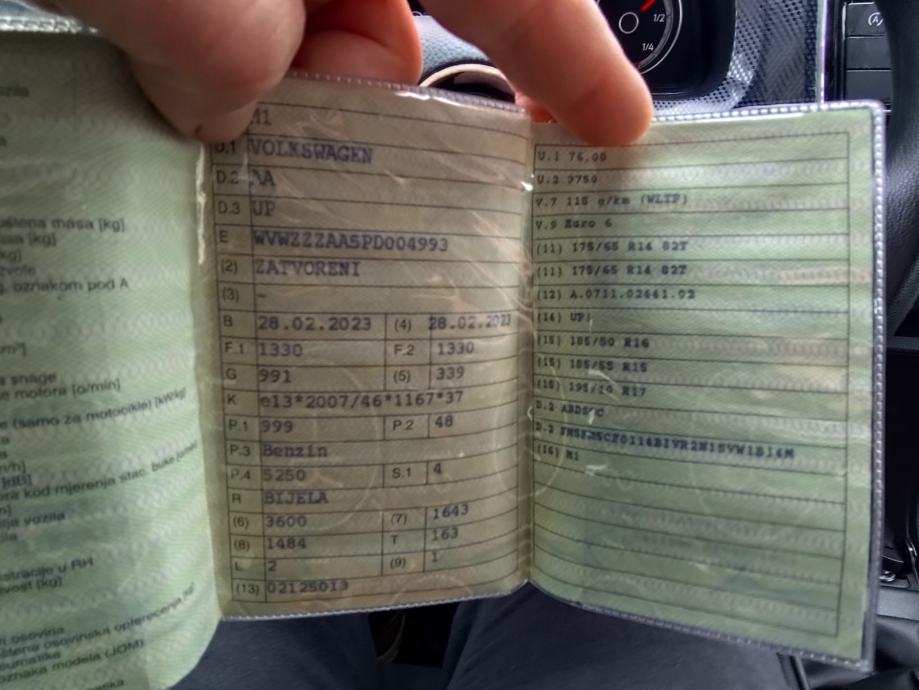 zila
M1
D.1 VOLKSWAGEN
D.2 AA
D.3 UP
E WVWZZZAASPD004993
(2) ZATVORENI
(3) -
B 28.02.2023 (4) 28.02.2023
F.1 1330 F.2 1330
G 991 (5) 339
K e13*2007/46*1167*37
P.1 999 P.2 48
P.3 Benzin
P.4 5250 S.1 4
R BIJELA
(6) 3600 (7) 1643
(8) 1484 T 163
L 2 (9) 1
(13) 02125013
U.1 76.00
U.2 3750
V.7 115 g/km (WLTP)
V.9 Euro 6
(11) 175/65 R14 82T
(11) 175/65 R14 82T
(12) A.0711.02661.02
(14) UP!
(15) 185/50 R16
(15) 185/55 R15
(15) R17
D.2 ABDSYC
D.2
(16) M1
masa [kg]
[kg]
kg]
oznakom pod A
snage
motora [o/min]
(samo za motocikle) [kW/kg]
m/h]
[dB]
kod mjerenja stac. buke
vozila
u RH
[kg]
osovina
osovinska opterećenja
oznaka modela (JOM)
1/2
1/4